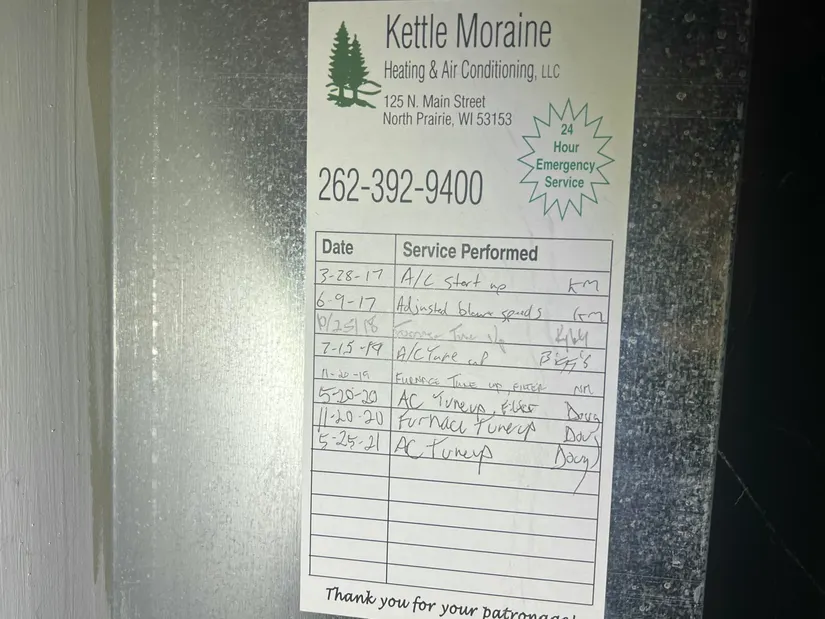 Kettle Moraine
Heating & Air Conditioning, LLC
125 N. Main Street
North Prairie, WI 53153
24
Hour
Emergency
Service
262-392-9400
Date Service Performed
3-28-17 A/C start up KM
6-9-17 Adjusted blower speeds KM
10/25/18 Furnace Tune Up
7-15-19 A/C Tune up
11-20-19 FURNACE TUNE UP, FILTER
5-20-20 AC Tuneup, Filter Doug
11-20-20 Furnace Tuneup Doug
5-25-21 AC Tuneup Doug
Thank you for your patronage!